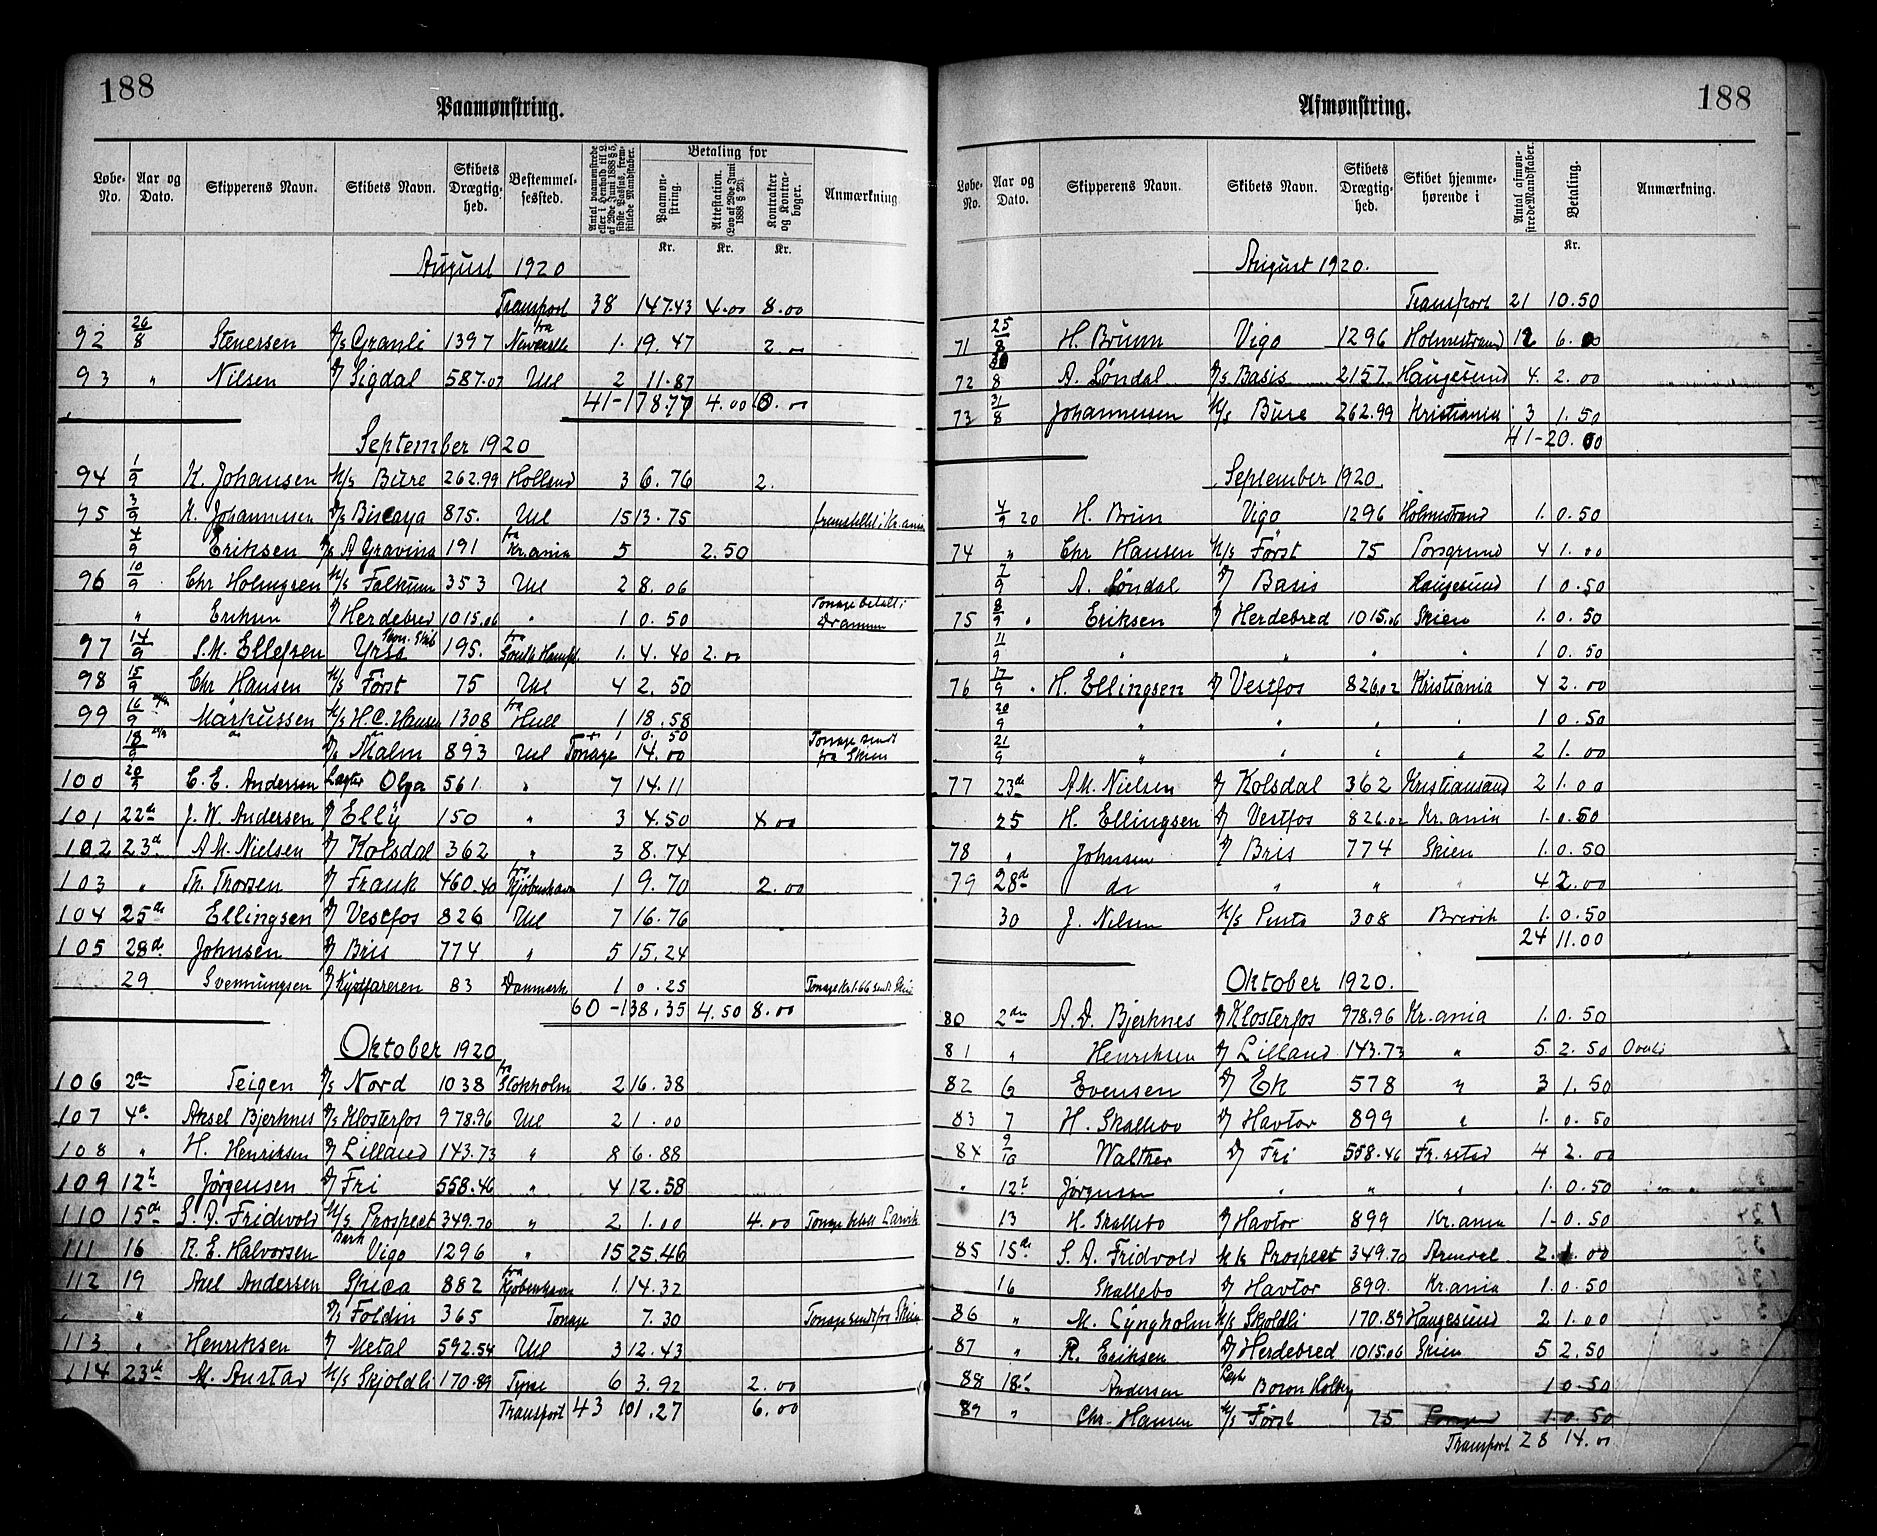 188
Paamønstring.
Løbe-No. | Aar og Dato. | Skipperens Navn. | Skibets Navn. | Skibets Drægtighed. | Bestemmelsessted. | Antal paamønstrede eller i Henhold til L. af 29de Juni 1888 § 5, sidste Passus, fremstillede Mandskaber. | Betaling for | Paamønstring. Kr. | Attestation. (Lov af 29de Juni 1888 § 23). Kr. | Kontrakter og Kontrabøger. Kr. | Anmærkning.
August 1920
Transport 38 147.43 4.00 8.00
92 26/8 Stenersen D/s Granli 1397 fra Newcastle 1. 19.47 2.00
93 " Nilsen D/ Sigdal 587.07 Udl 2 11.87
41 - 178.77 4.00 10.00
September 1920
94 1/9 K. Johansen M/s Bure 262.99 Holland 3 6.76 2.
95 3/9 K. Johannessen D/s Biscaya 875. Udl 15 13.75 fremstillet i Kr.ania
4/9 Eriksen D/s A Gravina 191 fra Kr.ania 5 2.50
96 10/9 Chr Holmgren M/s Falkum 353 Udl 2 8.06
" Eriksen D/ Herdebred 1015.06 " 1 0.50 Tonage betalt i Drammen
97 14/9 S.M. Ellefsen Yrsa 195. fra South Hampt. 1. 4.40 2.00
98 15/9 Chr Hansen M/s Först 75 Udl 4 2.50
99 16/9 Markussen M/s H.C. Hansen 1308 fra Hull 1 18.58
" 1 0.50
18/9 D/s Malm 893 Udl Tonage 14.00 Tonage sendt fra Skien
100 20/9 C.E. Andersen Lagter Olga 561. " 7 14.11
101 22de J.W. Andersen D/ Elly 150 " 3 4.50 4.00
102 23d A.M. Nielsen D/ Kolsdal 362 " 3 8.74
103 " Th. Thorsen D/ Frank 460.40 fra Kjøbenhavn 1 9.70 2.00
104 25de Ellingsen D/ Vestfos 826 Udl 7 16.76
105 28de Johnsen D/ Bris 774 " 5 15.24
29 Svennungsen D/ Kystfareren 83 Danmark 1 0.25 Tonage Kr 1.66 sendt Skien
60 - 138.35 4.50 8.00
Oktober 1920
106 2den Teigen D/s Nord 1038 fra Stokholm 2 16.38
107 4d. Aksel Bjerknes D/s Klosterfos 978.96 Udl 2 1.00
108 " H. Henriksen D/ Lilland 143.73 " 8 6.88
109 12t Jörgensen D/ Fri 558.46 " 4 12.58
110 15de S.A. Fridvold M/s Prospect 349.70 " 2 1.00 4.00 Tonage betalt Larvik
111 16 R.E. Halvorsen Bark Vigo 1296 " 15 25.46
112 19 Axel Andersen Spica 882 fra Kjøbenhavn 1. 14.32
" " D/s Foldin 365 Tonage 7.30 Tonage sendt fra Skien
113 " Henriksen D/ Metal 592.54 Udl 3 12.43
114 23de M. Austad M/s Skjoldli 170.89 Tyne 6 3.92 2.00
Transport 43 101.27 6.00
188
Afmønstring.
Løbe-No. | Aar og Dato. | Skipperens Navn. | Skibets Navn. | Skibets Drægtighed. | Skibet hjemmehørende i | Antal afmønstrede Mandskaber. | Betaling. Kr. | Anmærkning.
August 1920.
Transport 21 10.50
71 25/8 H. Brunn Vigo 1296 Holmestrand 12 6.00
72 30/8 A. Løndal D/s Basis 2157. Haugesund 4. 2.00
73 31/8 Johannessen M/s Bure 262.99 Kristiania 3 1.50
41 - 20.00
September 1920.
4/9 20 H. Brun Vigo 1296 Holmestrand 1. 0.50
74 " Chr Hansen M/s Först 75 Porsgrund 4 1.00
7/9 A. Løndal D/ Basis Haugesund 1 0.50
75 8/9 " Eriksen D/ Herdebred 1015.06 Skien 1. 0.50
11/9 " " " " 1 0.50
76 17/9 " H. Ellingsen D/ Vestfos 826.02 Kristiania 4 2.00
20/9 " " " " 1 0.50
21/9 " " " " 2 1.00
77 23de A.M. Nielsen D/ Kolsdal 362 Kristiansand 2 1.00
25 H. Ellingsen D/ Vestfos 826.02 Kr.ania 1. 0.50
78 " Johnsen D/ Bris 774 Skien 1. 0.50
79 28d do " " " 4 2.00
30 J. Nilsen M/s Penta 308 Brevik 1. 0.50
24 11.00
Oktober 1920.
80 2den A.D. Bjerknes D/ Klosterfos 978.96 Kr.ania 1. 0.50
81 " Henriksen D/ Lilland 143.73 " 5. 2.50
82 6 Evensen D/ Ek 578 " 3 1.50
83 7 H. Skallebo D/ Havtor 899 " 1. 0.50
84 9/10 Walther D/ Fri 558.46 Fr.stad 4 2.00
" 12t Jörgensen " " " 1. 0.50
13 H. Skallebo D/ Havtor 899 Kr.ania 1- 0.50
85 15de S.A. Fridvold M/s Prospect 349.70 Arendal 2. 1.00
16 Skallebo D/ Havtor 899. Kr.ania 1. 0.50
86 " M. Lyngholm M/s Skoldli 170.89 Haugesund 2 1.00
87 " R. Eriksen D/ Herdebred 1015.06 Skien 5 2.50
88 18t Andersen Boron Holbg 1 0.50
89 " Chr. Hansen M/s Först 75 1. 0.50
Transport 28 14.00